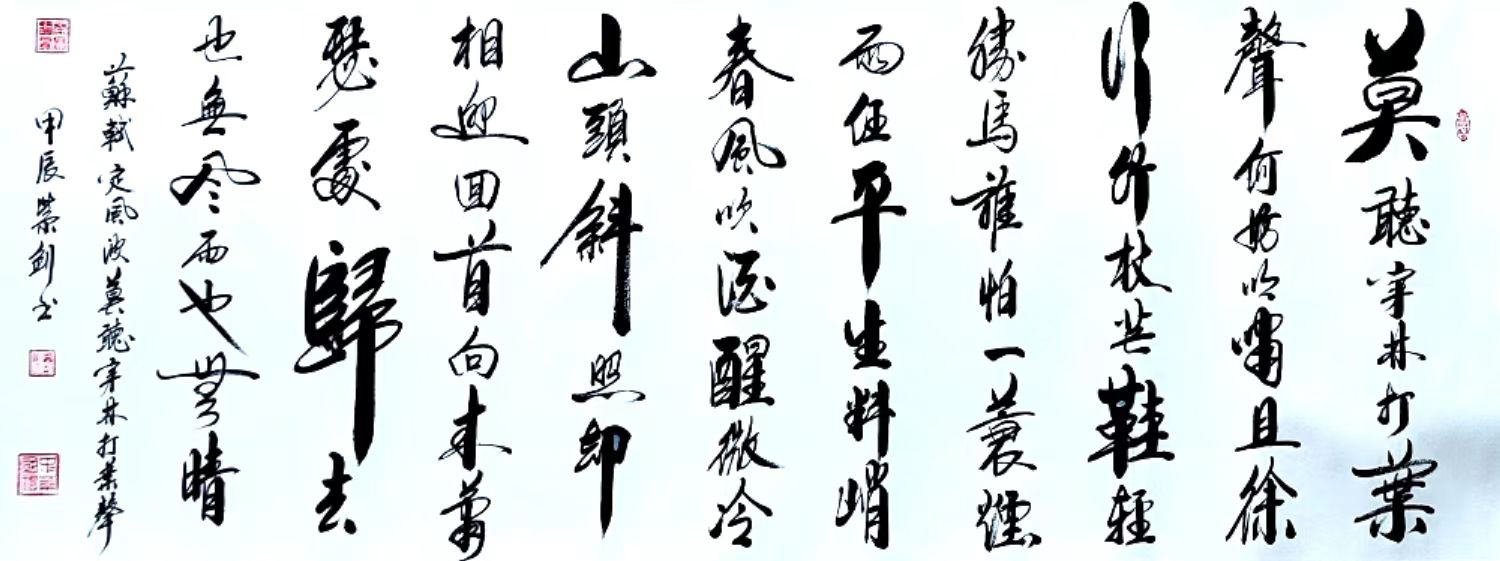 莫聽穿林打葉
聲何妨吟嘯且徐
行竹杖芒鞋輕
勝馬誰怕一蓑煙
雨任平生料峭
春風吹酒醒微冷
山頭斜照却
相迎回首向来蕭
瑟處歸去
也無风雨也無晴
蘇軾定風波莫聽穿林打葉聲
甲辰榮劍书